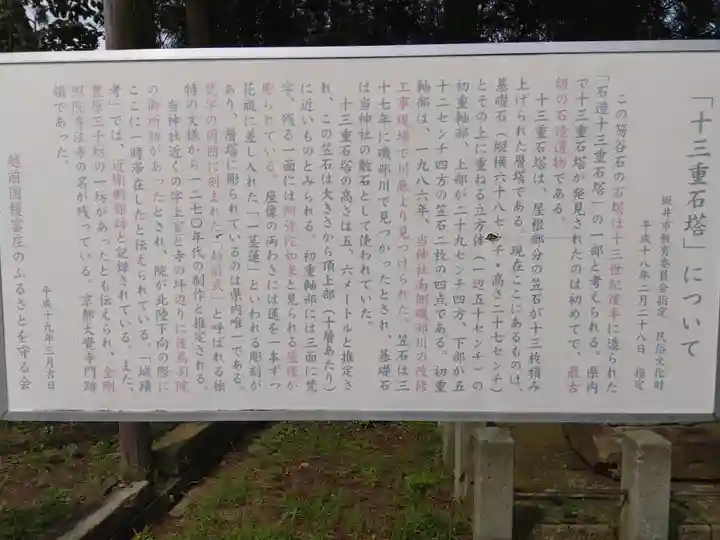 「十三重石塔」について
坂井市教育委員会指定　民俗文化財
平成十八年二月二十八日　指定
この笏谷石の石塔は十三世紀後半に造られた
「石造十三重石塔」の一部と考えられる。県内
で十三重石塔が発見されたのは初めてで、最古
級の石造遺物である。
十三重石塔は、屋根部分の笠石が十三枚積み
上げられた層塔である。現在ここにあるものは、
基礎石（縦横六十八センチ・高さ二十七センチ）
とその上に重ねる立方体（一辺五十センチ）の
初重軸部、上部が二十九センチ四方、下部が五
十二センチ四方の笠石二枚の四点である。初重
軸部は、一九八六年、当神社南側磯部川の改修
工事現場で川底より見つけられた。笠石は三
十七年に磯部川で見つかったとされ、基礎石
は当神社の敷石として使われていた。
十三重石塔の高さは五、六メートルと推定さ
れ、この笠石は大きさから頂上部（十層あたり）
に近いものとみられる。初重軸部には三面に梵
字、残る一面には阿弥陀如来と見られる座像が
彫られている。座像の両わきには蓮を一本ずつ
花瓶に差し入れた「一茎蓮」といわれる彫刻が
あり、層塔に彫られているのは県内唯一である。
梵字の周囲に刻まれた「越前式」と呼ばれる独
特の文様から一二七〇年代の制作と推定される。
当神社近くの字上宮と寺の坪辺りに後鳥羽院
の御所跡があったとされ、院が北陸下向の際に
ここに一時滞在したと伝えられている。「城蹟
考」では、近衛刑部跡と記録されている。また、
豊原三千坊の一坊があったとも伝えられ、金剛
院弁法寺の名が残っている。京都大覚寺門跡
領であった。
平成十九年三月吉日
越前国榎富庄のふるさとを守る会